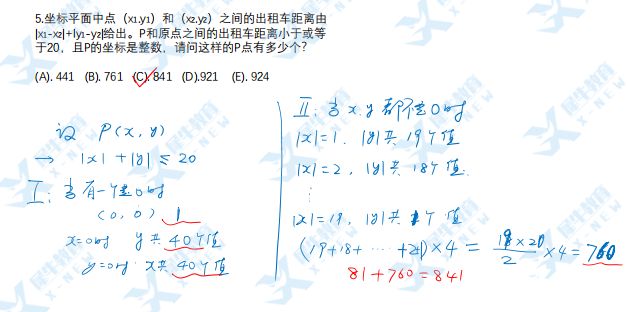 5.坐标平面中点（x₁,y₁）和（x₂,y₂）之间的出租车距离由
|x₁-x₂|+|y₁-y₂|给出。P和原点之间的出租车距离小于或等
于20，且P的坐标是整数，请问这样的P点有多少个？
(A). 441 (B). 761 (C). 841 (D).921 (E). 924
设 P(x, y)
→ |x| + |y| ≤ 20
I: 当有一个是0时
(0, 0) 1
x=0时 y共40个值
y=0时 x共40个值
II: 当x.y都不是0时
|x|=1, |y|共19个值
|x|=2, |y|共18个值.
⋮
|x|=19, |y|共1个值
(19+18+ ⋯ +1)×4 = 19×20/2 ×4 = 760
81+760=841
犀牛教育
X-NEW